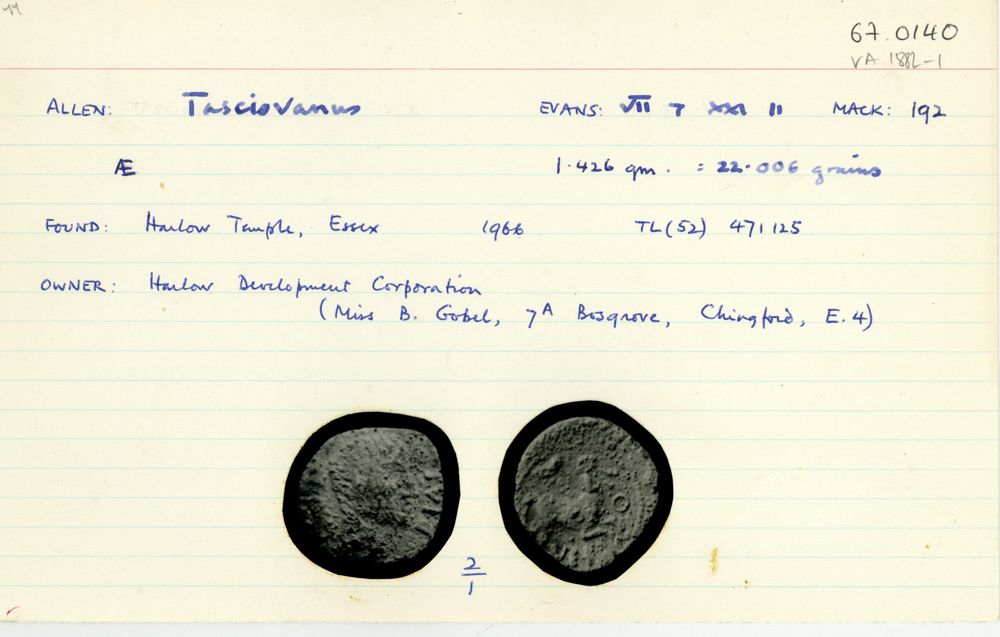 67.0140
VA 1882-1
ALLEN: Tasciovanus EVANS: VII 7 XXI 11 MACK: 192
Æ 1.426 gm. = 22.006 grains
FOUND: Harlow Temple, Essex 1966 TL(52) 471125
OWNER: Harlow Development Corporation
(Miss B. Gobel, 7A Bosgrove, Chingford, E.4)
2
1